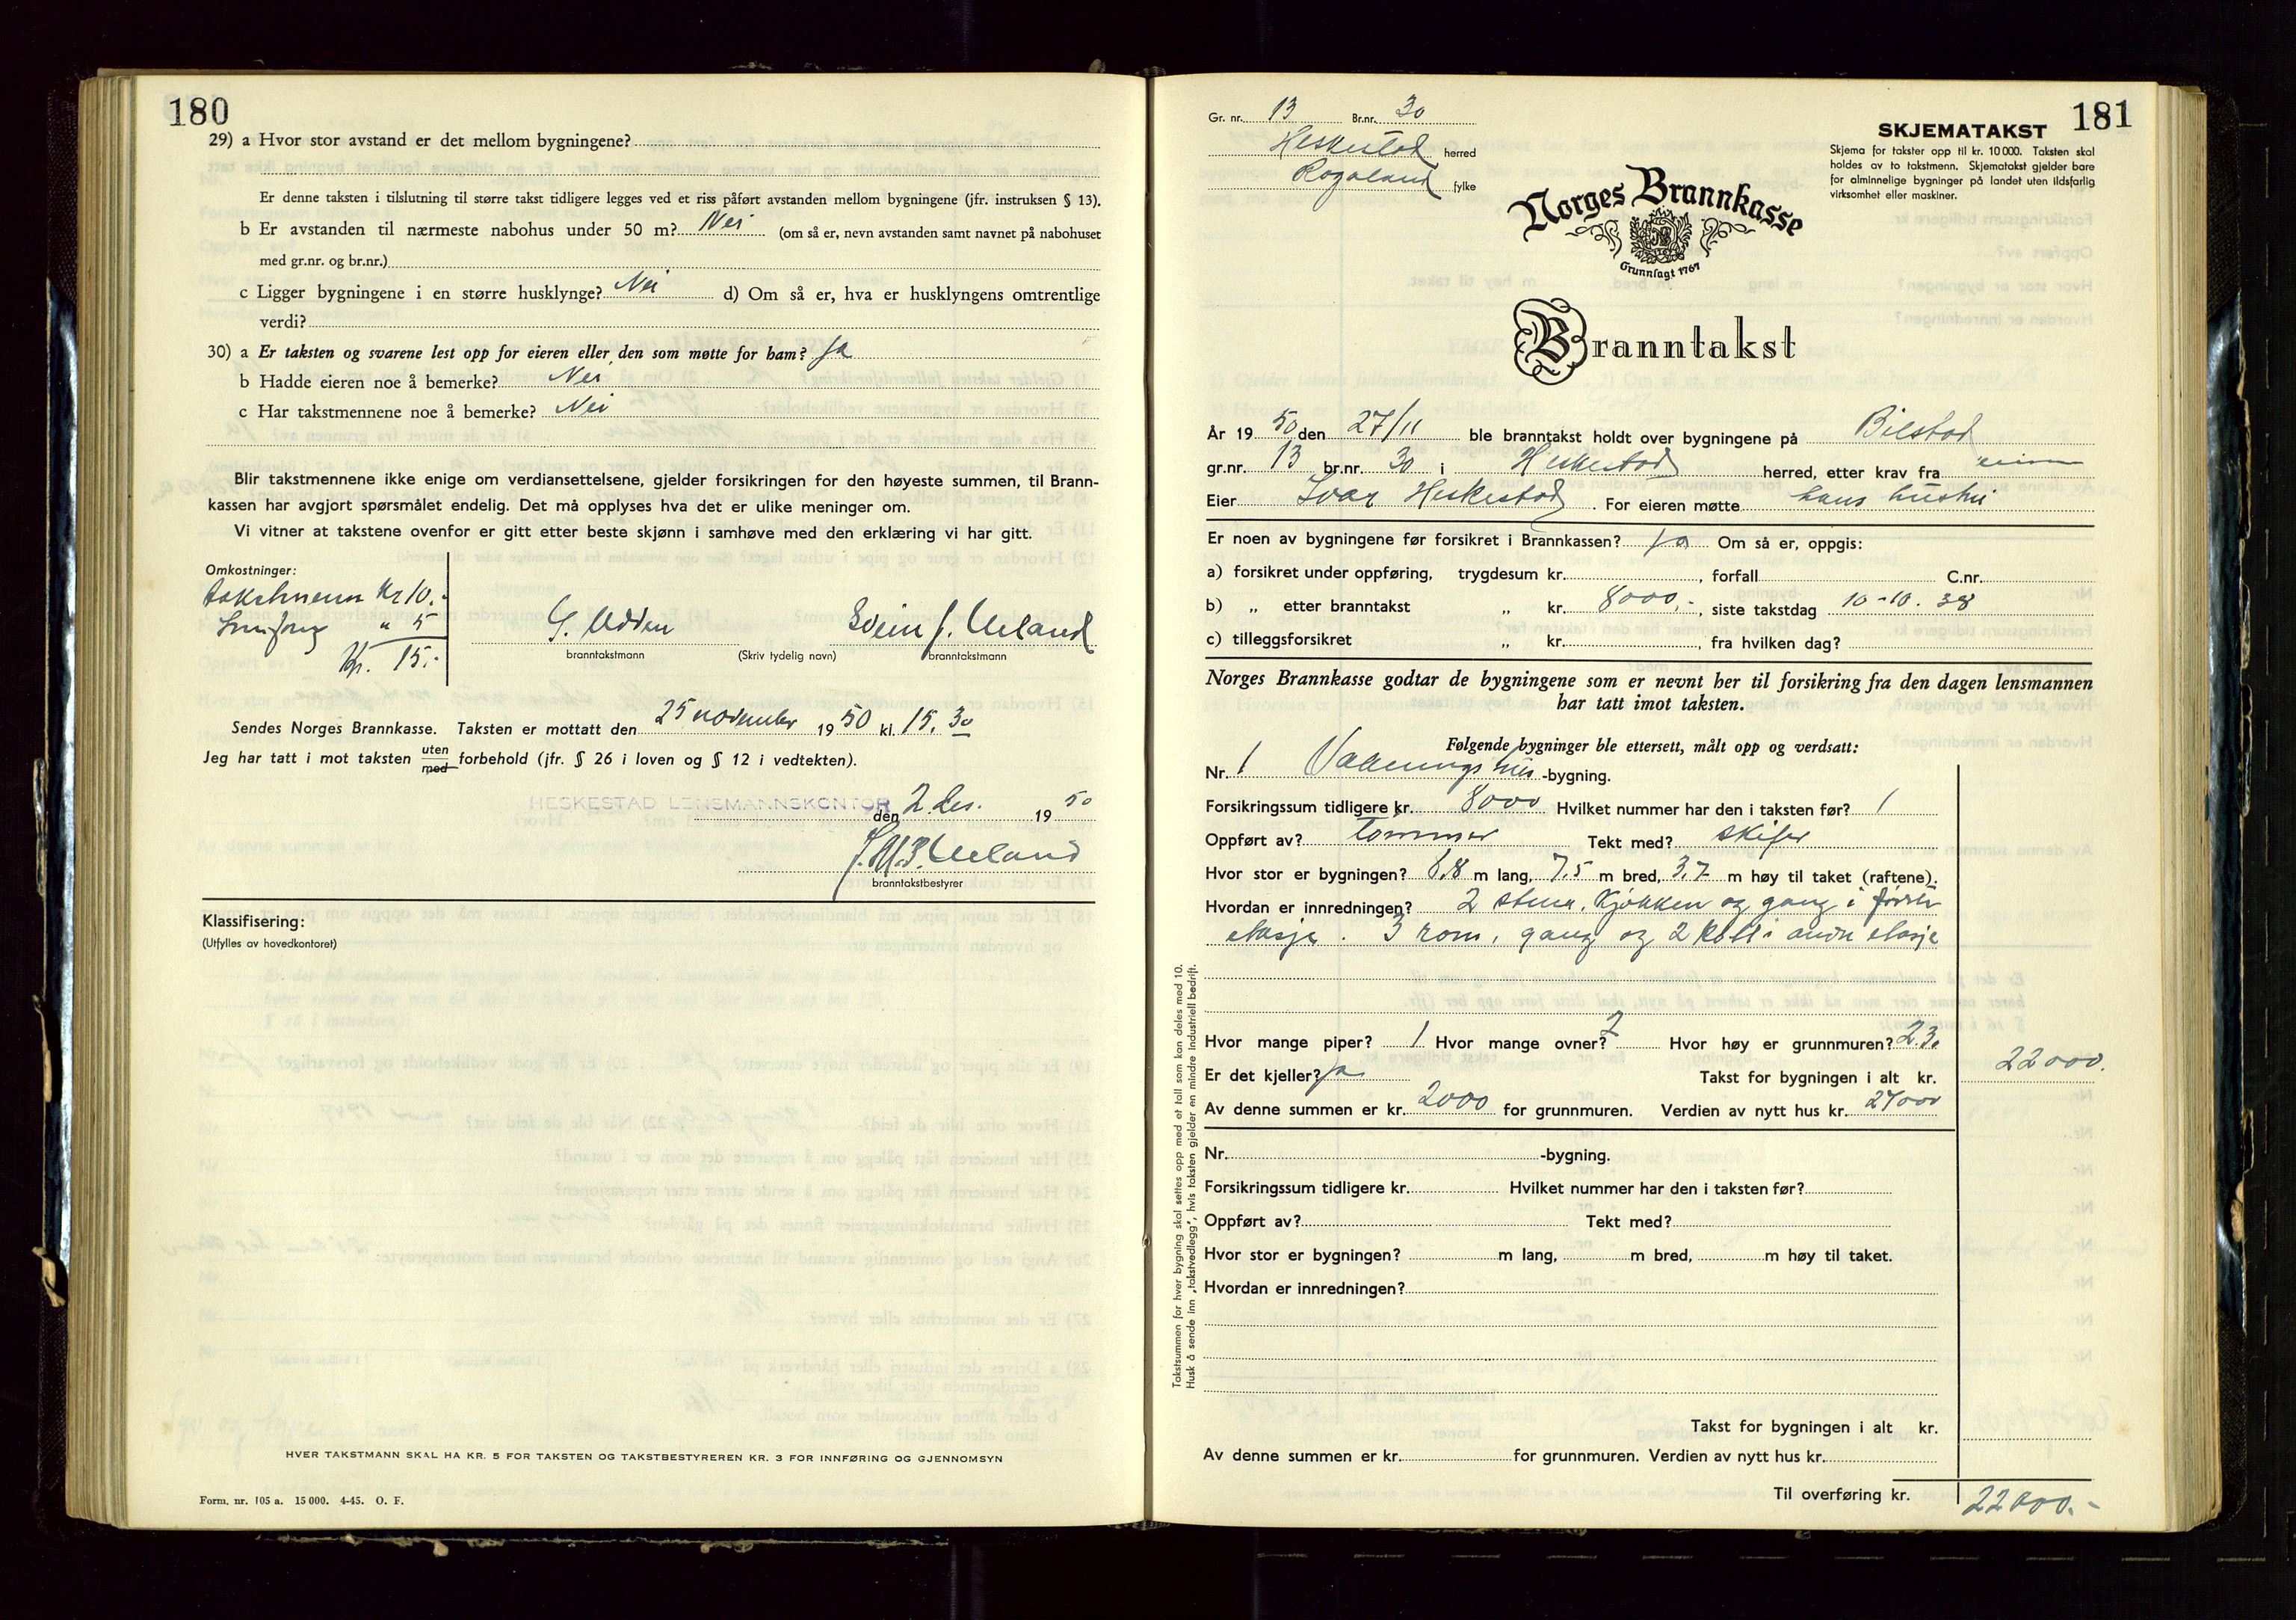 180
29) a Hvor stor avstand er det mellom bygningene?
Er denne taksten i tilslutning til større takst tidligere legges ved et riss påført avstanden mellom bygningene (jfr. instruksen § 13).
b Er avstanden til nærmeste nabohus under 50 m? Nei (om så er, nevn avstanden samt navnet på nabohuset
med gr.nr. og br.nr.)
c Ligger bygningene i en større husklynge? Nei d) Om så er, hva er husklyngens omtrentlige
verdi?
30) a Er taksten og svarene lest opp for eieren eller den som møtte for ham? Ja
b Hadde eieren noe å bemerke? Nei
c Har takstmennene noe å bemerke? Nei
Blir takstmennene ikke enige om verdiansettelsene, gjelder forsikringen for den høyeste summen, til Brann-
kassen har avgjort spørsmålet endelig. Det må opplyses hva det er ulike meninger om.
Vi vitner at takstene ovenfor er gitt etter beste skjønn i samhøve med den erklæring vi har gitt.
Omkostninger:
takstmenn Kr 10.-
" 5
Kr. 15.-
G. Udden Svein J. Ueland
branntakstmann (Skriv tydelig navn) branntakstmann
Sendes Norges Brannkasse. Taksten er mottatt den 25 november 1950 kl. 15.30
Jeg har tatt i mot taksten uten med forbehold (jfr. § 26 i loven og § 12 i vedtekten).
HESKESTAD LENSMANNSKONTOR den 2. des. 1950
Ueland
branntakstbestyrer
Klassifisering:
(Utfylles av hovedkontoret)
HVER TAKSTMANN SKAL HA KR. 5 FOR TAKSTEN OG TAKSTBESTYREREN KR. 3 FOR INNFØRING OG GJENNOMSYN
Form. nr. 105 a. 15 000. 4-45. O. F.
181
Gr. nr. 13 Br.nr. 30
Heskestad herred
Rogaland fylke
SKJEMATAKST
Skjema for takster opp til kr. 10 000. Taksten skal
holdes av to takstmenn. Skjematakst gjelder bare
for alminnelige bygninger på landet uten ildsfarlig
virksomhet eller maskiner.
Norges Brannkasse
Grunnlagt 1767
Branntakst
År 1950 den 27/11 ble branntakst holdt over bygningene på Bilstad
gr.nr. 13 br.nr. 30 i Heskestad herred, etter krav fra eieren
Eier Ivar Heskestad. For eieren møtte hans hustru
Er noen av bygningene før forsikret i Brannkassen? Ja Om så er, oppgis:
a) forsikret under oppføring, trygdesum kr. , forfall C.nr.
b) „ etter branntakst „ kr. 8000,-, siste takstdag 10-10. 38
c) tilleggsforsikret „ kr. , fra hvilken dag?
Norges Brannkasse godtar de bygningene som er nevnt her til forsikring fra den dagen lensmannen
har tatt imot taksten.
Følgende bygninger ble ettersett, målt opp og verdsatt:
Nr. 1 Vaaningshus -bygning.
Forsikringssum tidligere kr. 8000 Hvilket nummer har den i taksten før? 1
Oppført av? Tømmer Tekt med? skifer
Hvor stor er bygningen? 8.8 m lang, 7.5 m bred, 3.7 m høy til taket (raftene).
Hvordan er innredningen? 2 stuer, kjøkken og gang i første
etasje. 3 rom, gang og 2 kott i andre etasje
Hvor mange piper? 1 Hvor mange ovner? 2 Hvor høy er grunnmuren? 2.30
Er det kjeller? ja Takst for bygningen i alt kr. 22000.
Av denne summen er kr. 2000 for grunnmuren. Verdien av nytt hus kr. 27000
Nr. -bygning.
Forsikringssum tidligere kr. Hvilket nummer har den i taksten før?
Oppført av? Tekt med?
Hvor stor er bygningen? m lang, m bred, m høy til taket.
Hvordan er innredningen?
Takst for bygningen i alt kr.
Av denne summen er kr. for grunnmuren. Verdien av nytt hus kr.
Til overføring kr. 22000.-
Takstsummen for hver bygning skal settes opp med et tall som kan deles med 10.
Husk å sende inn „takstvedlegg", hvis taksten gjelder en mindre industriell bedrift.